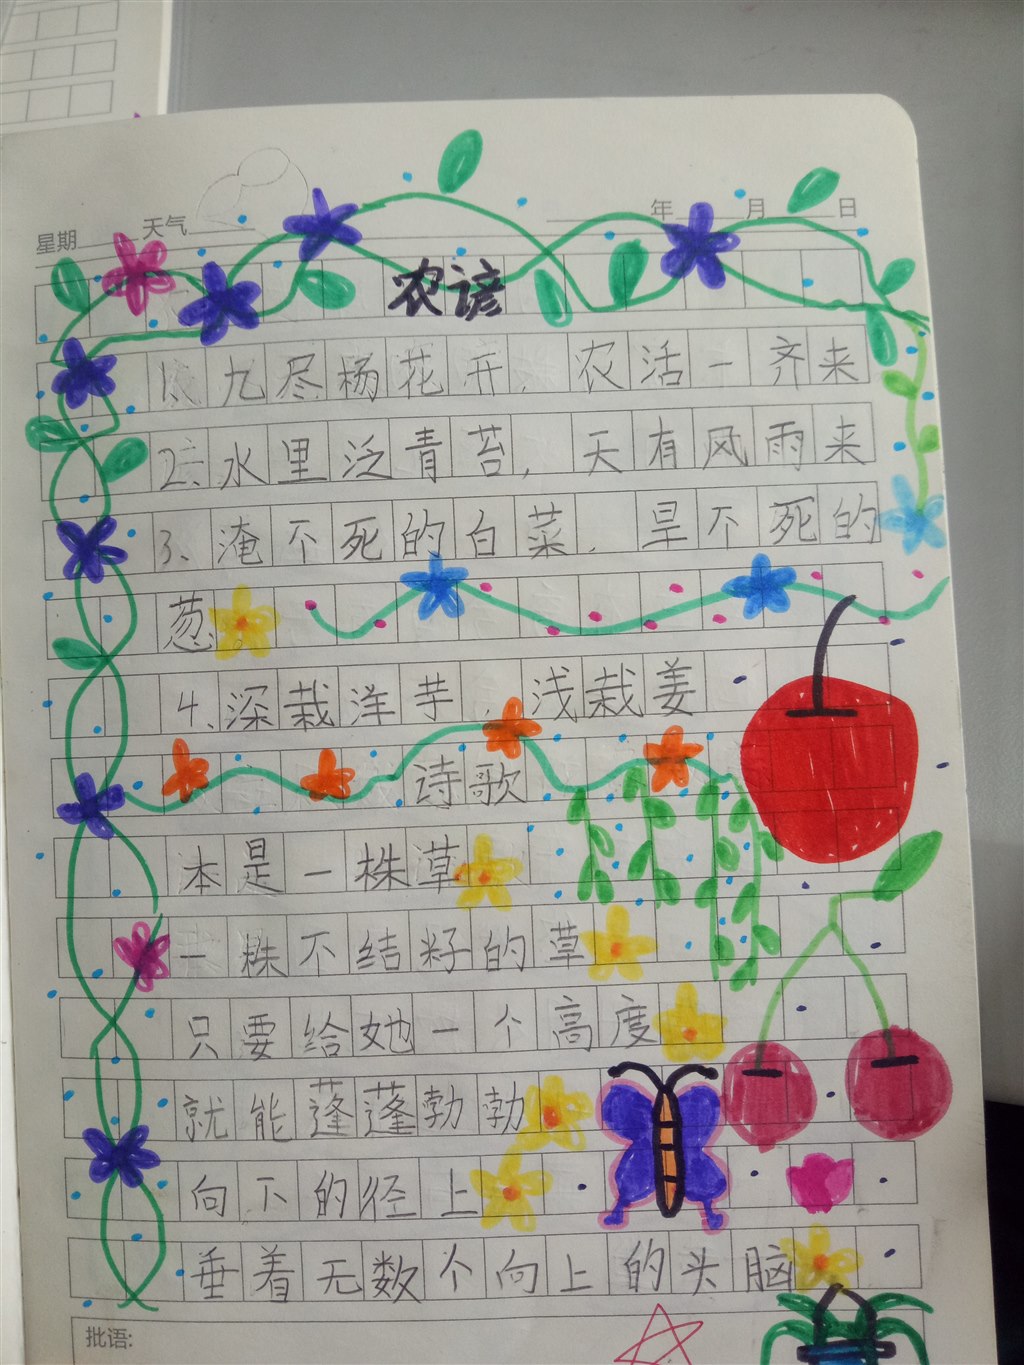 星期 天气 年 月 日
农谚
1、九尽杨花开，农活一齐来
2、水里泛青苔，天有风雨来
3、淹不死的白菜，旱不死的
葱。
4、深栽洋芋，浅栽姜
诗歌
本是一株草
一株不结籽的草
只要给她一个高度
就能蓬蓬勃勃
向下的径上
垂着无数个向上的头脑
批语: